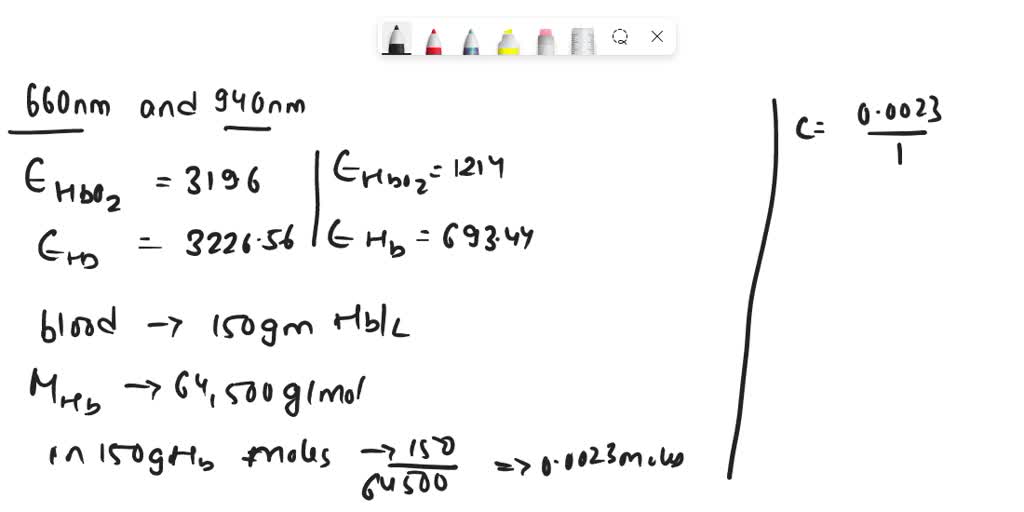 660nm and 940nm
ЄHbO2 = 3196 | ЄHbO2 = 1214
ЄHb = 3226.56 | Є Hb = 693.44
blood → 150gm Hb/L
MHb → 64,500g/mol
in 150gHb moles → 150/64500 => 0.0023moles
C= 0.0023/1